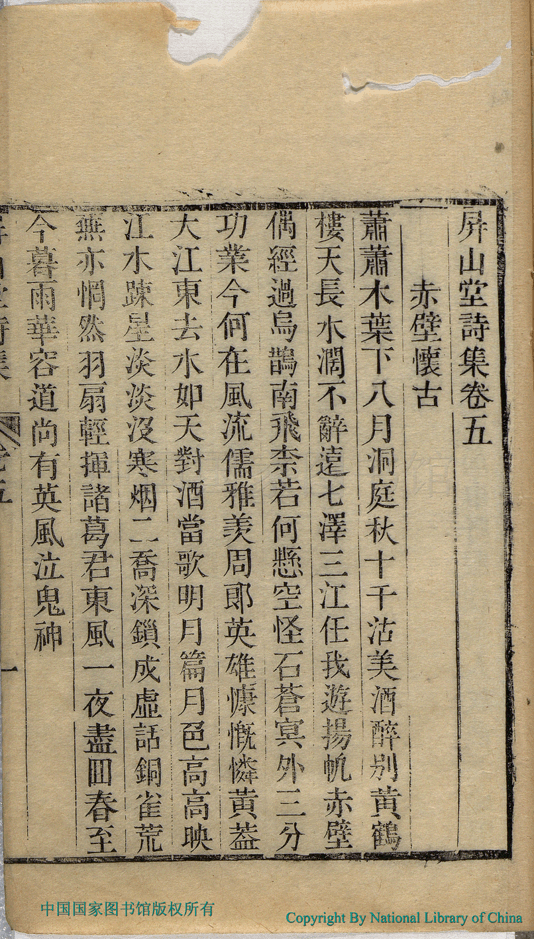 屏山堂詩集卷五
赤壁懷古
蕭蕭木葉下八月洞庭秋十千沽美酒醉别黃鶴
樓天長水濶不辭遠七澤三江任我遊揚帆赤壁
偶經過烏鵲南飛柰若何懸空怪石蒼冥外三分
功業今何在風流儒雅羡周郎英雄慷慨憐黃葢
大江東去水如天對酒當歌明月篇月色高高映
江水踈星淡淡沒寒烟二喬深鎖成虛話銅雀荒
蕪亦惘然羽扇輕揮諸葛君東風一夜盡回春至
今暮雨華容道尚有英風泣鬼神
屏山堂詩集
卷五
一
中国国家图书馆版权所有
Copyright By National Library of China